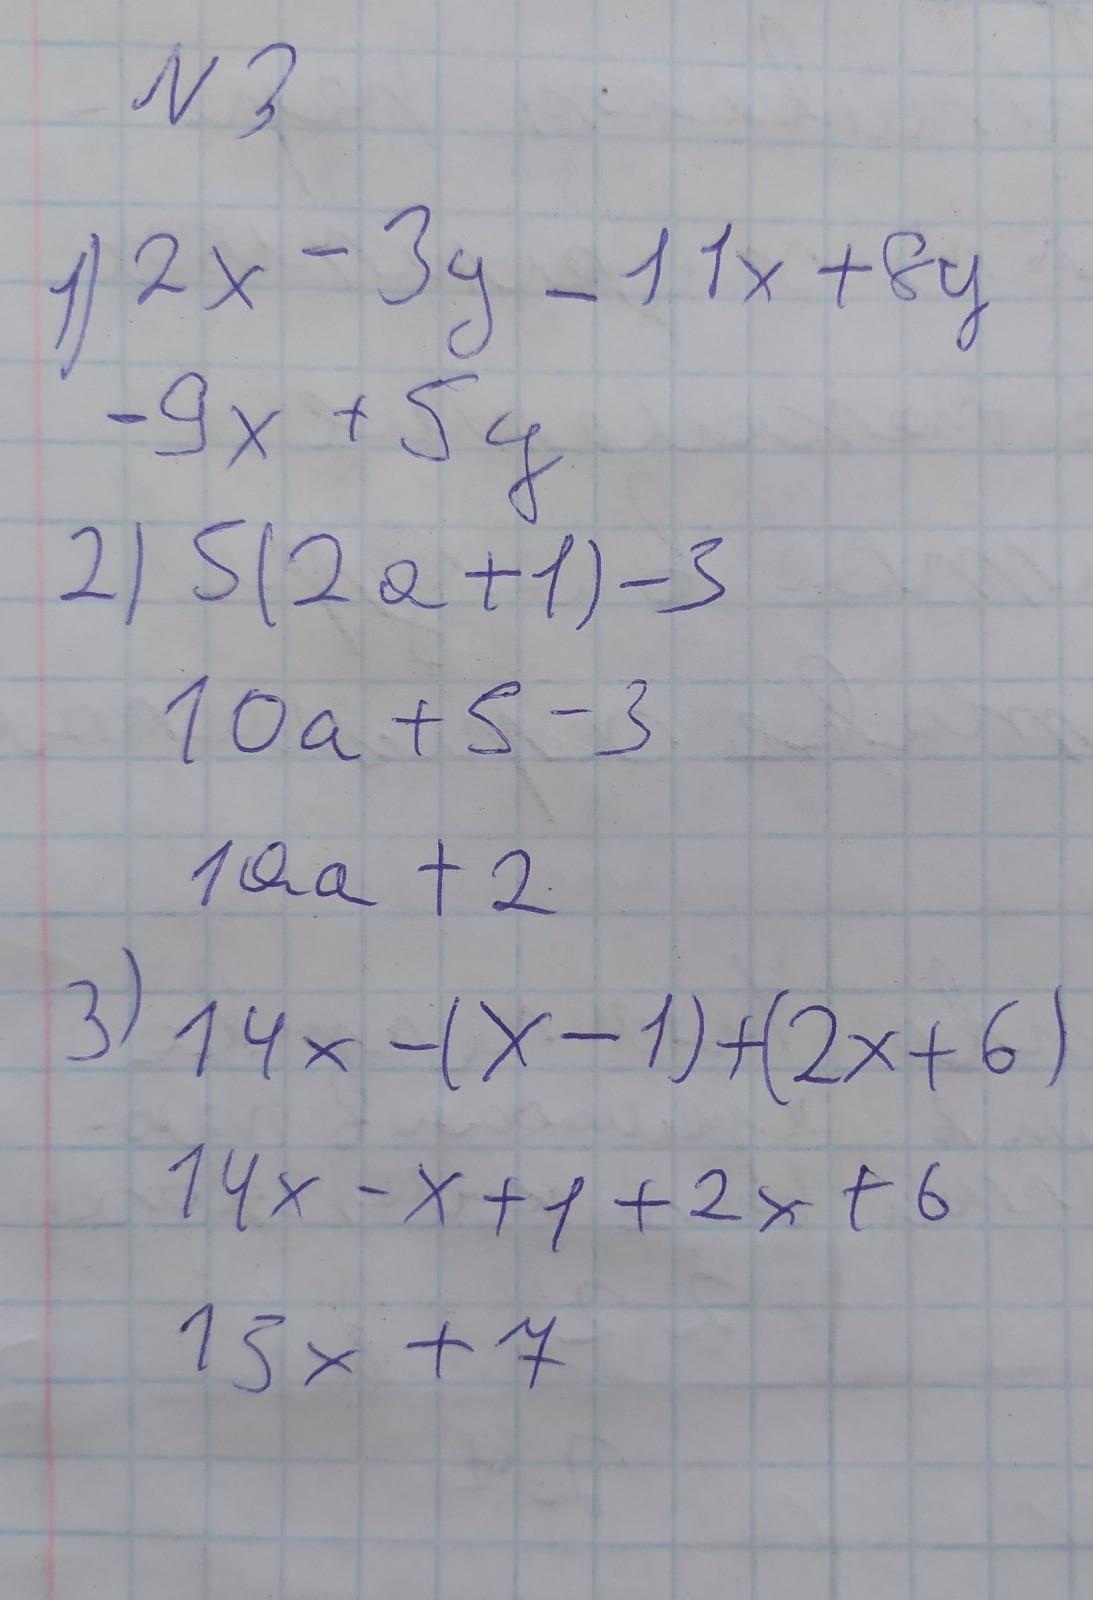 N 3
1) 2x - 3y - 11x + 8y
-9x + 5y
2) 5(2a+1)-3
10a + 5 - 3
10a + 2
3) 14x -(x-1)+(2x+6)
14x - x + 1 + 2x + 6
15x + 7